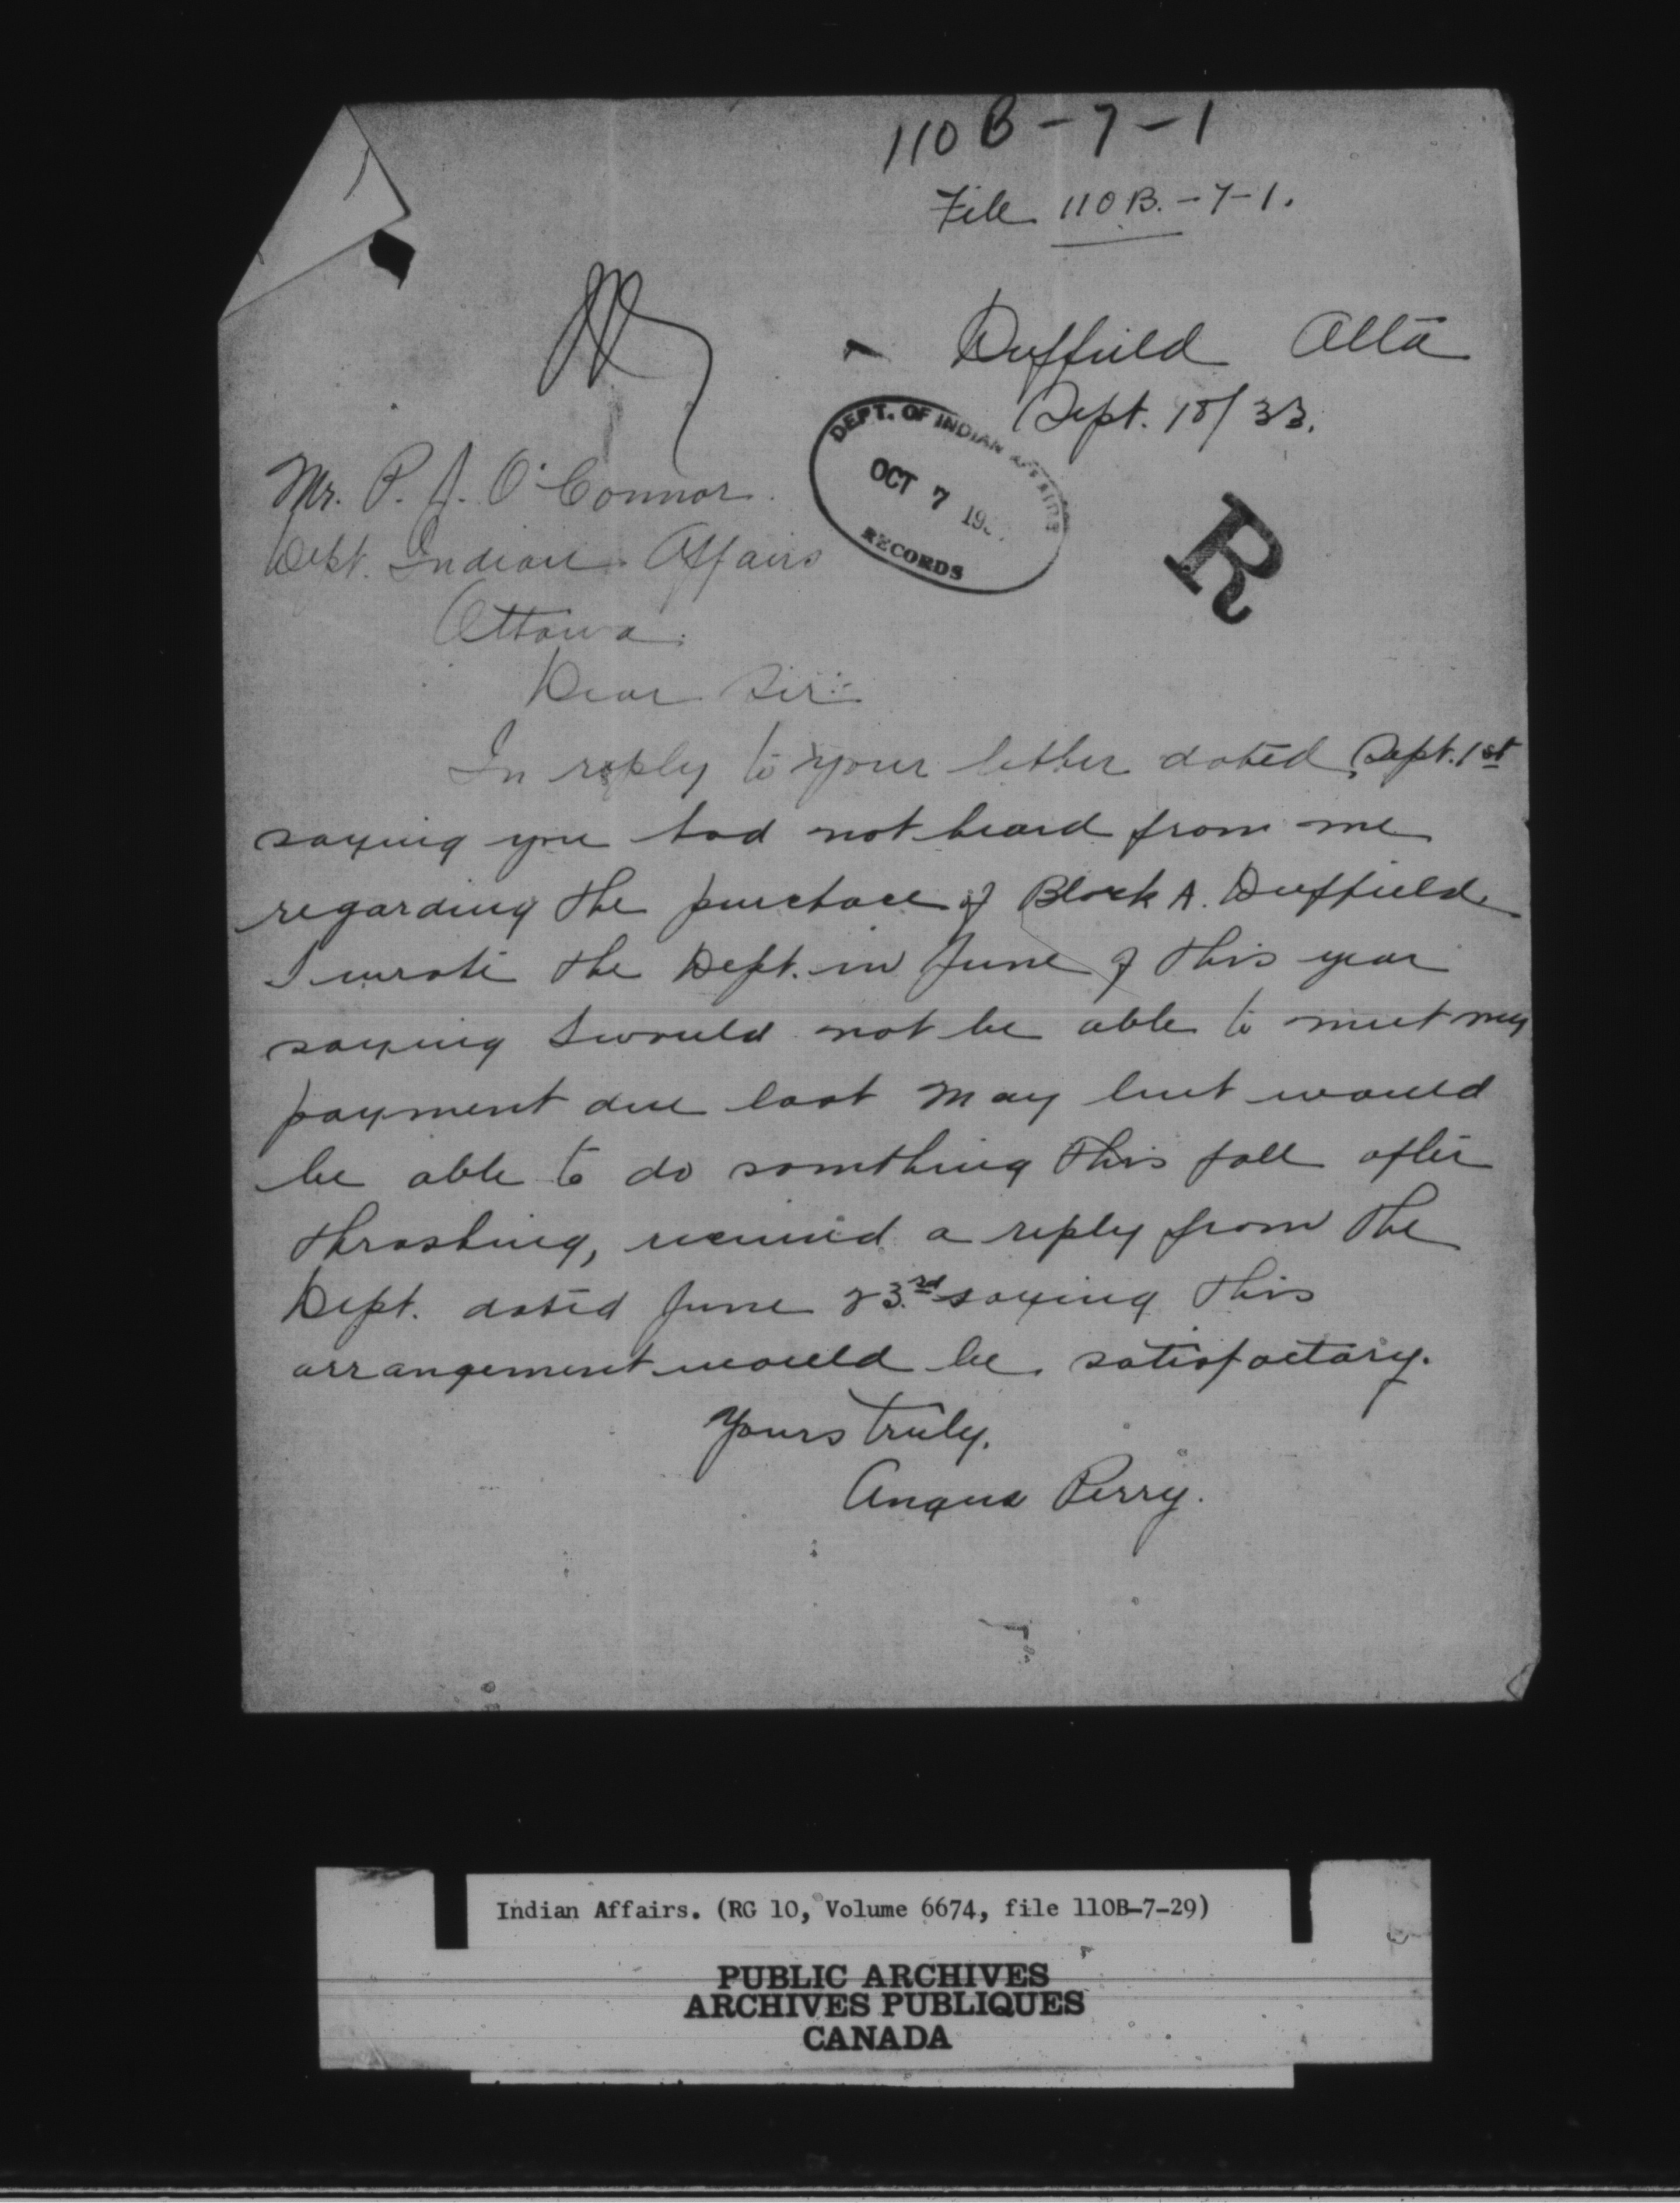 110 B-7-1
File 110 B.-7-1.
Duffield Alta
Sept. 18/33.
DEPT. OF INDIAN AFFAIRS
OCT 7 19
RECORDS
R
Mr. P. J. O'Connor.
Dept. Indian Affairs
Ottawa.
Dear Sir:-
In reply to your letter dated Sept. 1st
saying you had not heard from me
regarding the purchase of Block A. Duffield
I wrote the Dept. in June of this year
saying I would not be able to meet my
payment due last May but would
be able to do somthing this fall after
thrashing, received a reply from the
Dept. dated June 23rd saying this
arrangement would be satisfactory.
Yours truly,
Angus Perry.
Indian Affairs. (RG 10, Volume 6674, file 110B-7-29)
PUBLIC ARCHIVES
ARCHIVES PUBLIQUES
CANADA